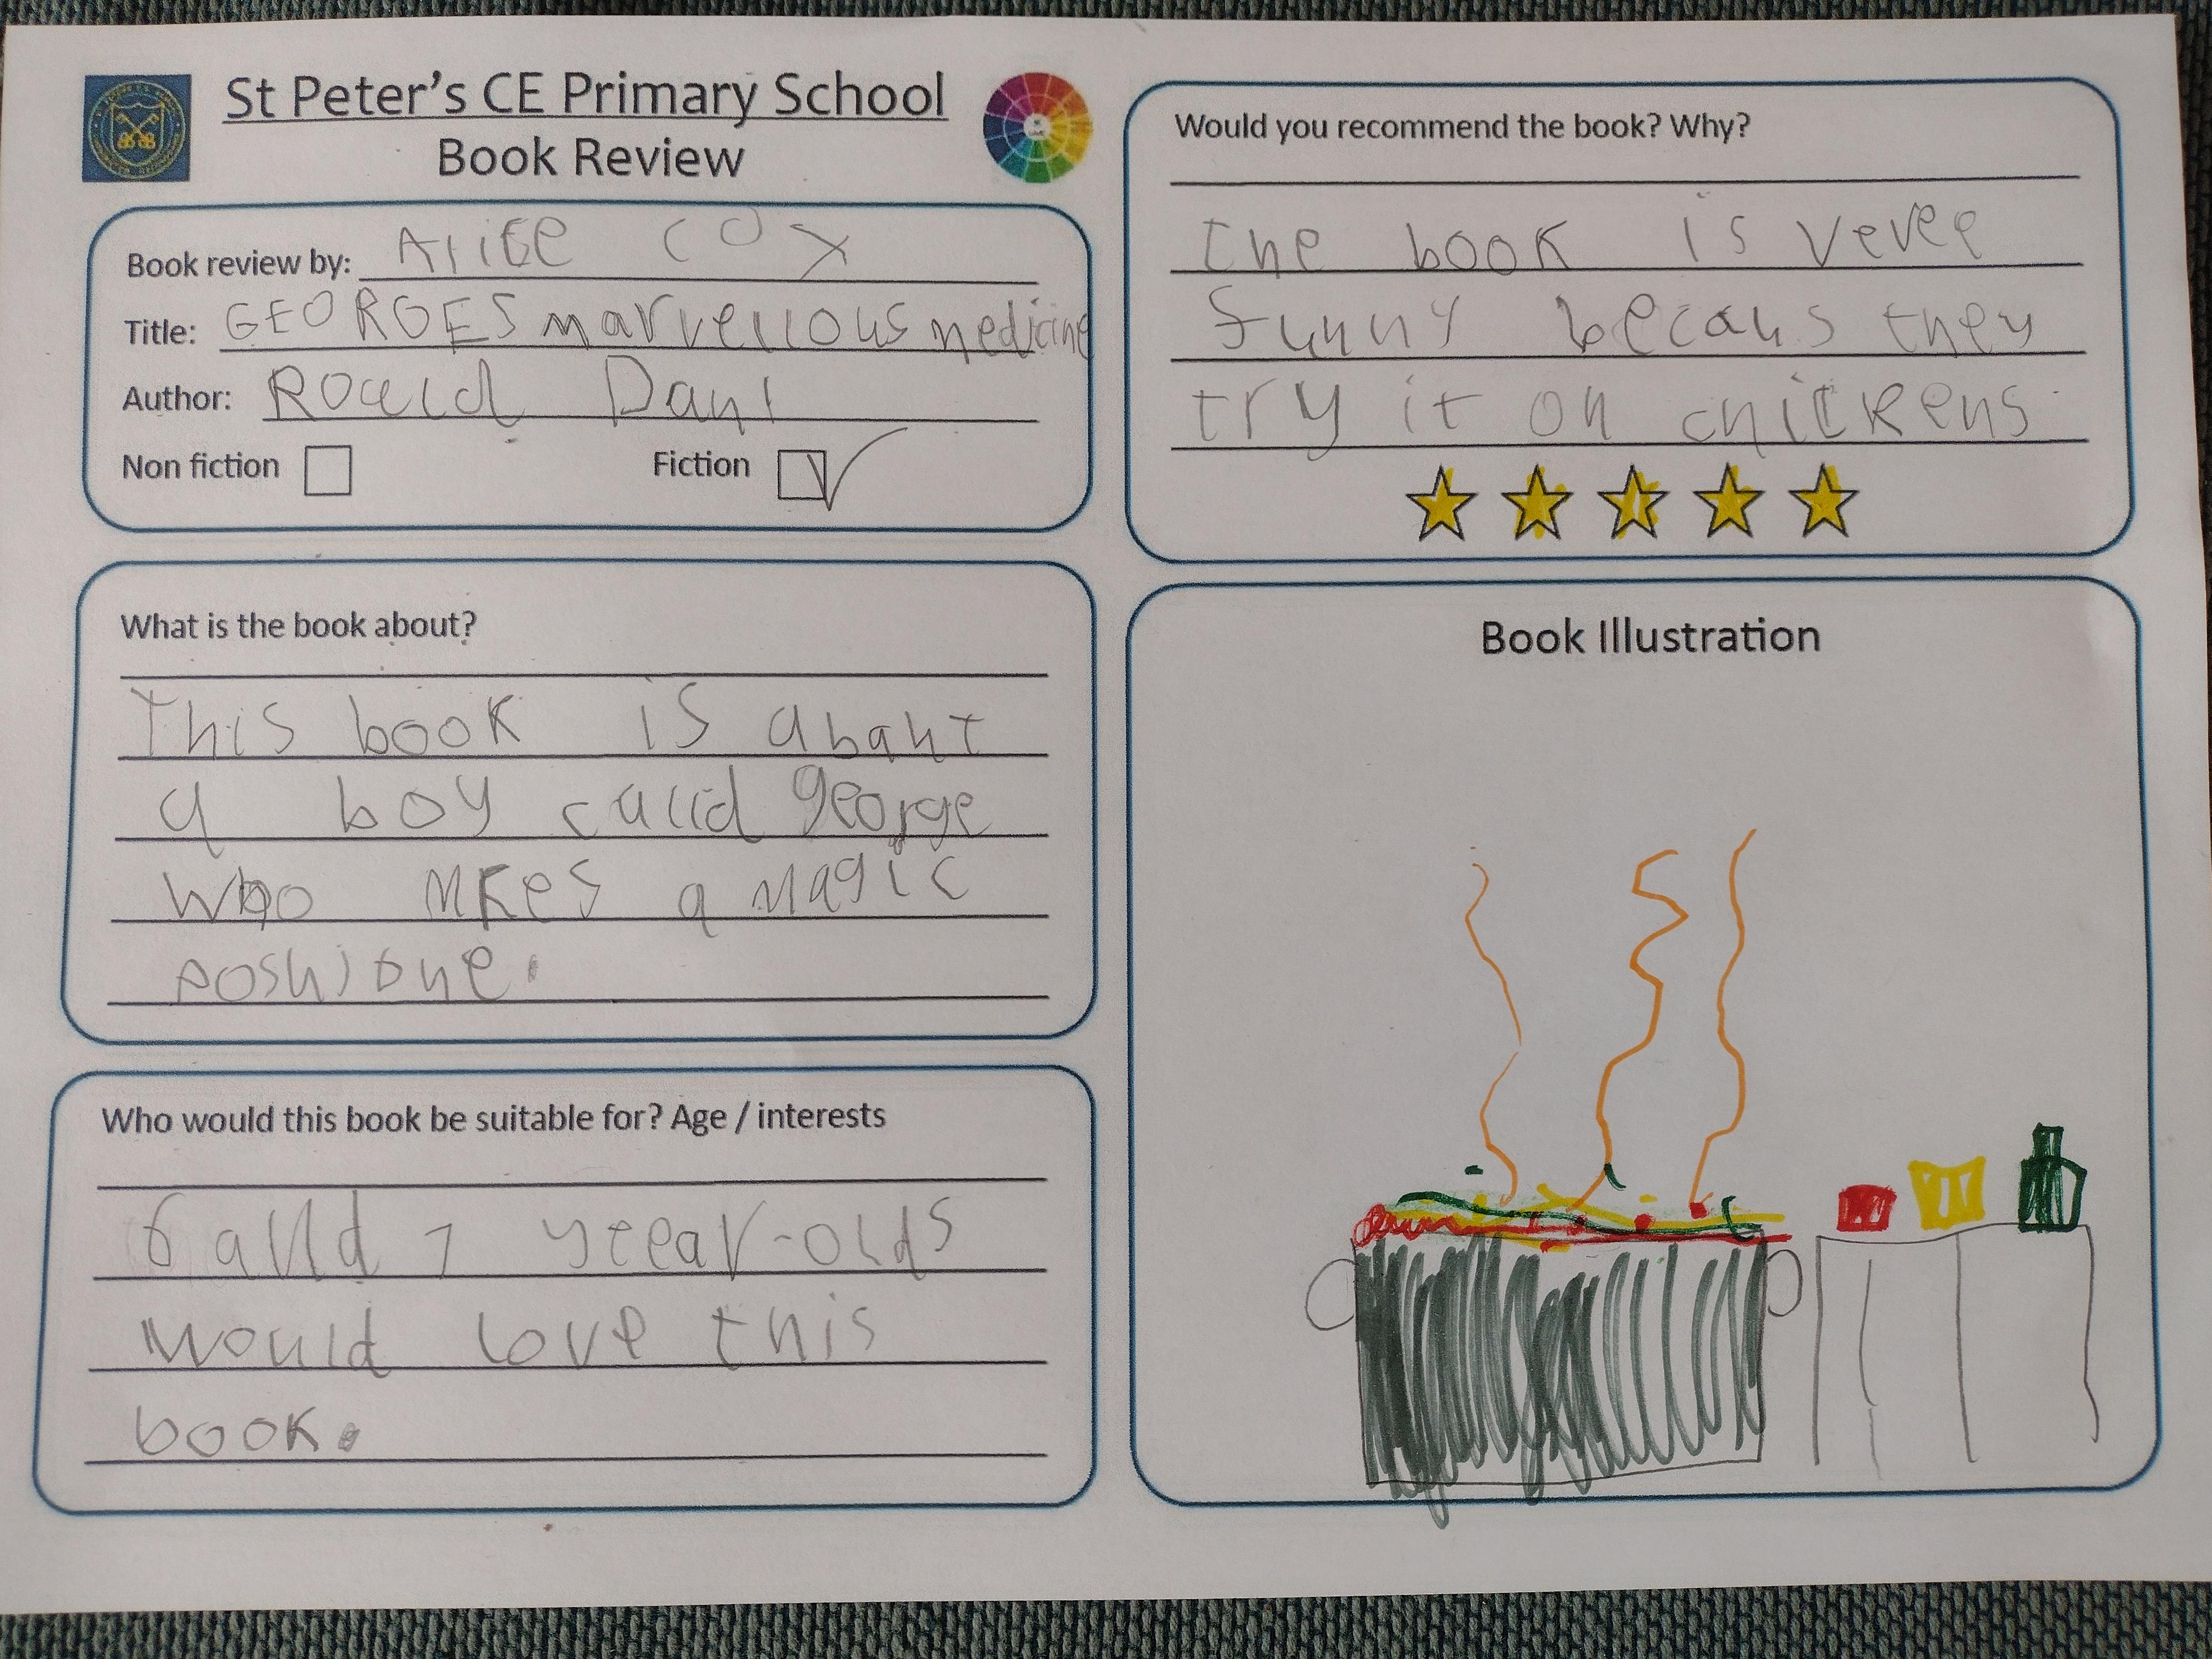 St Peter's CE Primary School
Book Review
Book review by: Alice Cox
Title: GEORGES marvellous medicine
Author: Roald Dahl
Non fiction
Fiction
What is the book about?
This book is abaut
a boy calld george
who mkes a magic
poshione.
Who would this book be suitable for? Age / interests
6 and 7 yeear-olds
would love this
book.
Would you recommend the book? Why?
the book is veree
funny becaus they
try it on chickens
Book Illustration